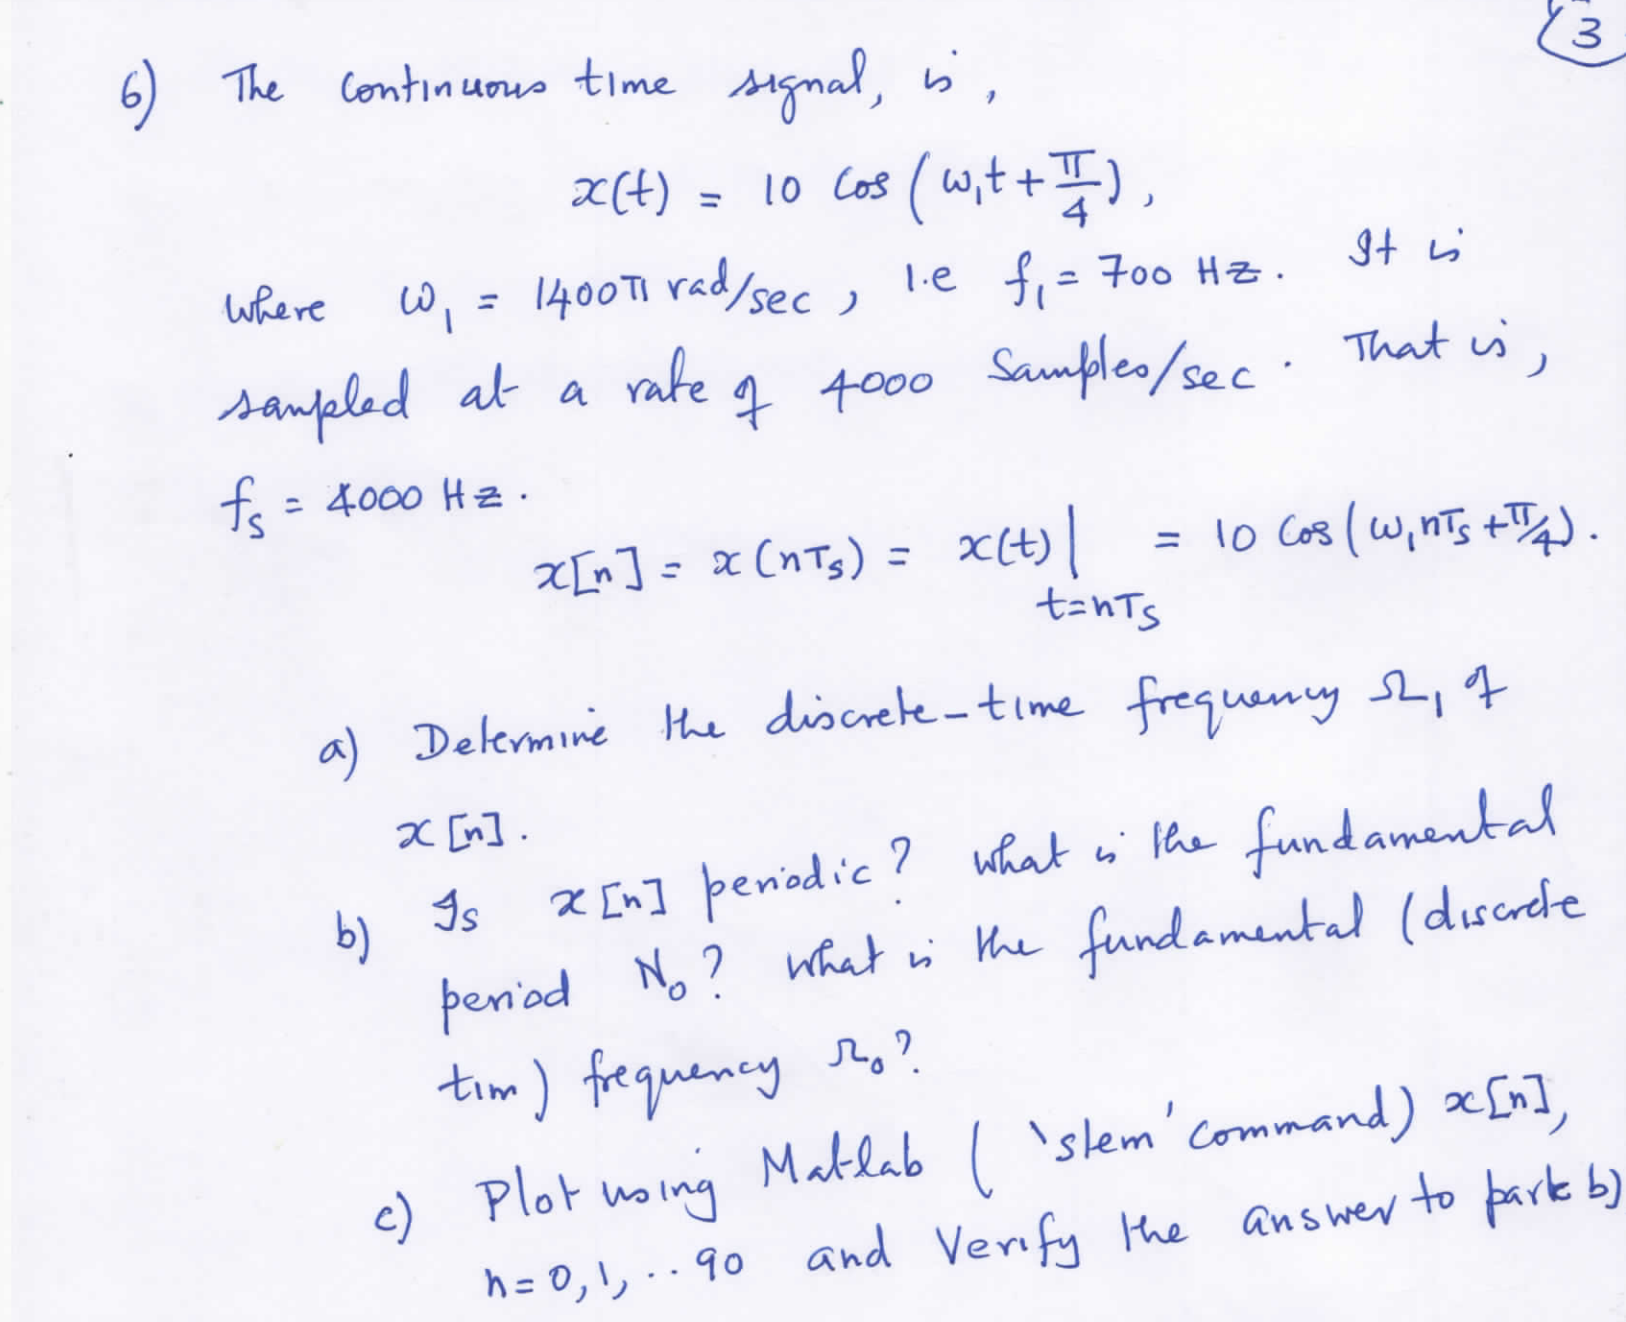 3
6) The continuous time signal, is,
x(t) = 10 cos (ω₁t + π/4),
where ω₁ = 1400π rad/sec, i.e f₁ = 700 Hz. It is
sampled at a rate of 4000 Samples/sec. That is,
fₛ = 4000 Hz.
x[n] = x(nTₛ) = x(t)| = 10 cos(ω₁nTₛ + π/4).
t=nTₛ
a) Determine the discrete-time frequency Ω₁ of
x[n].
b) Is x[n] periodic? what is the fundamental
period N₀? what is the fundamental (discrete
tim) frequency Ω₀?
c) Plot using Matlab ('stem' command) x[n],
n=0,1,..90 and Verify the answer to part b)